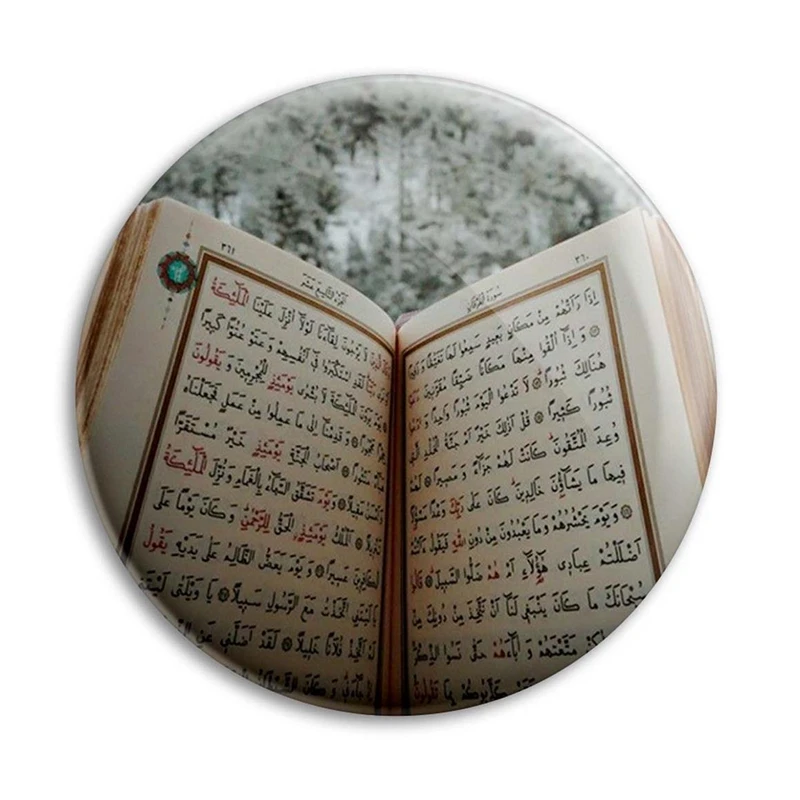 ٣٦٠
سُورَةُ الْفُرْقَانِ
إِذَا رَأَتْهُمْ مِنْ مَكَانٍ بَعِيدٍ سَمِعُوا لَهَا تَغَيُّظًا وَزَفِيرًا
۞ وَإِذَا أُلْقُوا مِنْهَا مَكَانًا ضَيِّقًا مُقَرَّنِينَ دَعَوْا
هُنَالِكَ ثُبُورًا ۞ لَا تَدْعُوا الْيَوْمَ ثُبُورًا وَاحِدًا وَادْعُوا
ثُبُورًا كَثِيرًا ۞ قُلْ أَذَلِكَ خَيْرٌ أَمْ جَنَّةُ الْخُلْدِ الَّتِي
وُعِدَ الْمُتَّقُونَ كَانَتْ لَهُمْ جَزَاءً وَمَصِيرًا ۞ لَهُمْ
فِيهَا مَا يَشَاؤُنَ خَالِدِينَ كَانَ عَلَى رَبِّكَ وَعْدًا مَسْؤُلًا
۞ وَيَوْمَ يَحْشُرُهُمْ وَمَا يَعْبُدُونَ مِنْ دُونِ اللّٰهِ فَيَقُولُ ءَأَنْتُمْ
أَضْلَلْتُمْ عِبَادِي هَؤُلَاءِ أَمْ هُمْ ضَلُّوا السَّبِيلَ ۞ قَالُوا
سُبْحَانَكَ مَا كَانَ يَنْبَغِي لَنَا أَنْ نَتَّخِذَ مِنْ دُونِكَ مِنْ
مَتَّعْتَهُمْ وَآبَاءَهُمْ حَتَّى نَسُوا الذِّكْرَ
كَذَّبُوكُمْ بِمَا تَقُولُونَ
٣٦١
الْجُزْءُ التَّاسِعَ عَشَرَ
لَا يَرْجُونَ لِقَاءَنَا لَوْلَا أُنْزِلَ عَلَيْنَا الْمَلٰئِكَةُ
أَوْ نَرَى رَبَّنَا لَقَدِ اسْتَكْبَرُوا فِي أَنْفُسِهِمْ وَعَتَوْ عُتُوًّا كَبِيرًا
۞ يَوْمَ يَرَوْنَ الْمَلٰئِكَةَ لَا بُشْرَى يَوْمَئِذٍ لِلْمُجْرِمِينَ وَيَقُولُونَ
حِجْرًا مَحْجُورًا ۞ وَقَدِمْنَا إِلَى مَا عَمِلُوا مِنْ عَمَلٍ فَجَعَلْنَاهُ
هَبَاءً مَنْثُورًا ۞ أَصْحَابُ الْجَنَّةِ يَوْمَئِذٍ خَيْرٌ مُسْتَقَرًّا
وَأَحْسَنُ مَقِيلًا ۞ وَيَوْمَ تَشَقَّقُ السَّمَاءُ بِالْغَمَامِ وَنُزِّلَ الْمَلٰئِكَةُ
تَنْزِيلًا ۞ الْمُلْكُ يَوْمَئِذٍ الْحَقُّ لِلرَّحْمَنِ وَكَانَ يَوْمًا عَلَى
الْكَافِرِينَ عَسِيرًا ۞ وَيَوْمَ يَعَضُّ الظَّالِمُ عَلَى يَدَيْهِ يَقُولُ
يَا لَيْتَنِي اتَّخَذْتُ مَعَ الرَّسُولِ سَبِيلًا ۞ يَا وَيْلَتَى لَيْتَنِي
لَمْ أَتَّخِذْ فُلَانًا خَلِيلًا ۞ لَقَدْ أَضَلَّنِي عَنِ
جَاءَنِي وَكَانَ